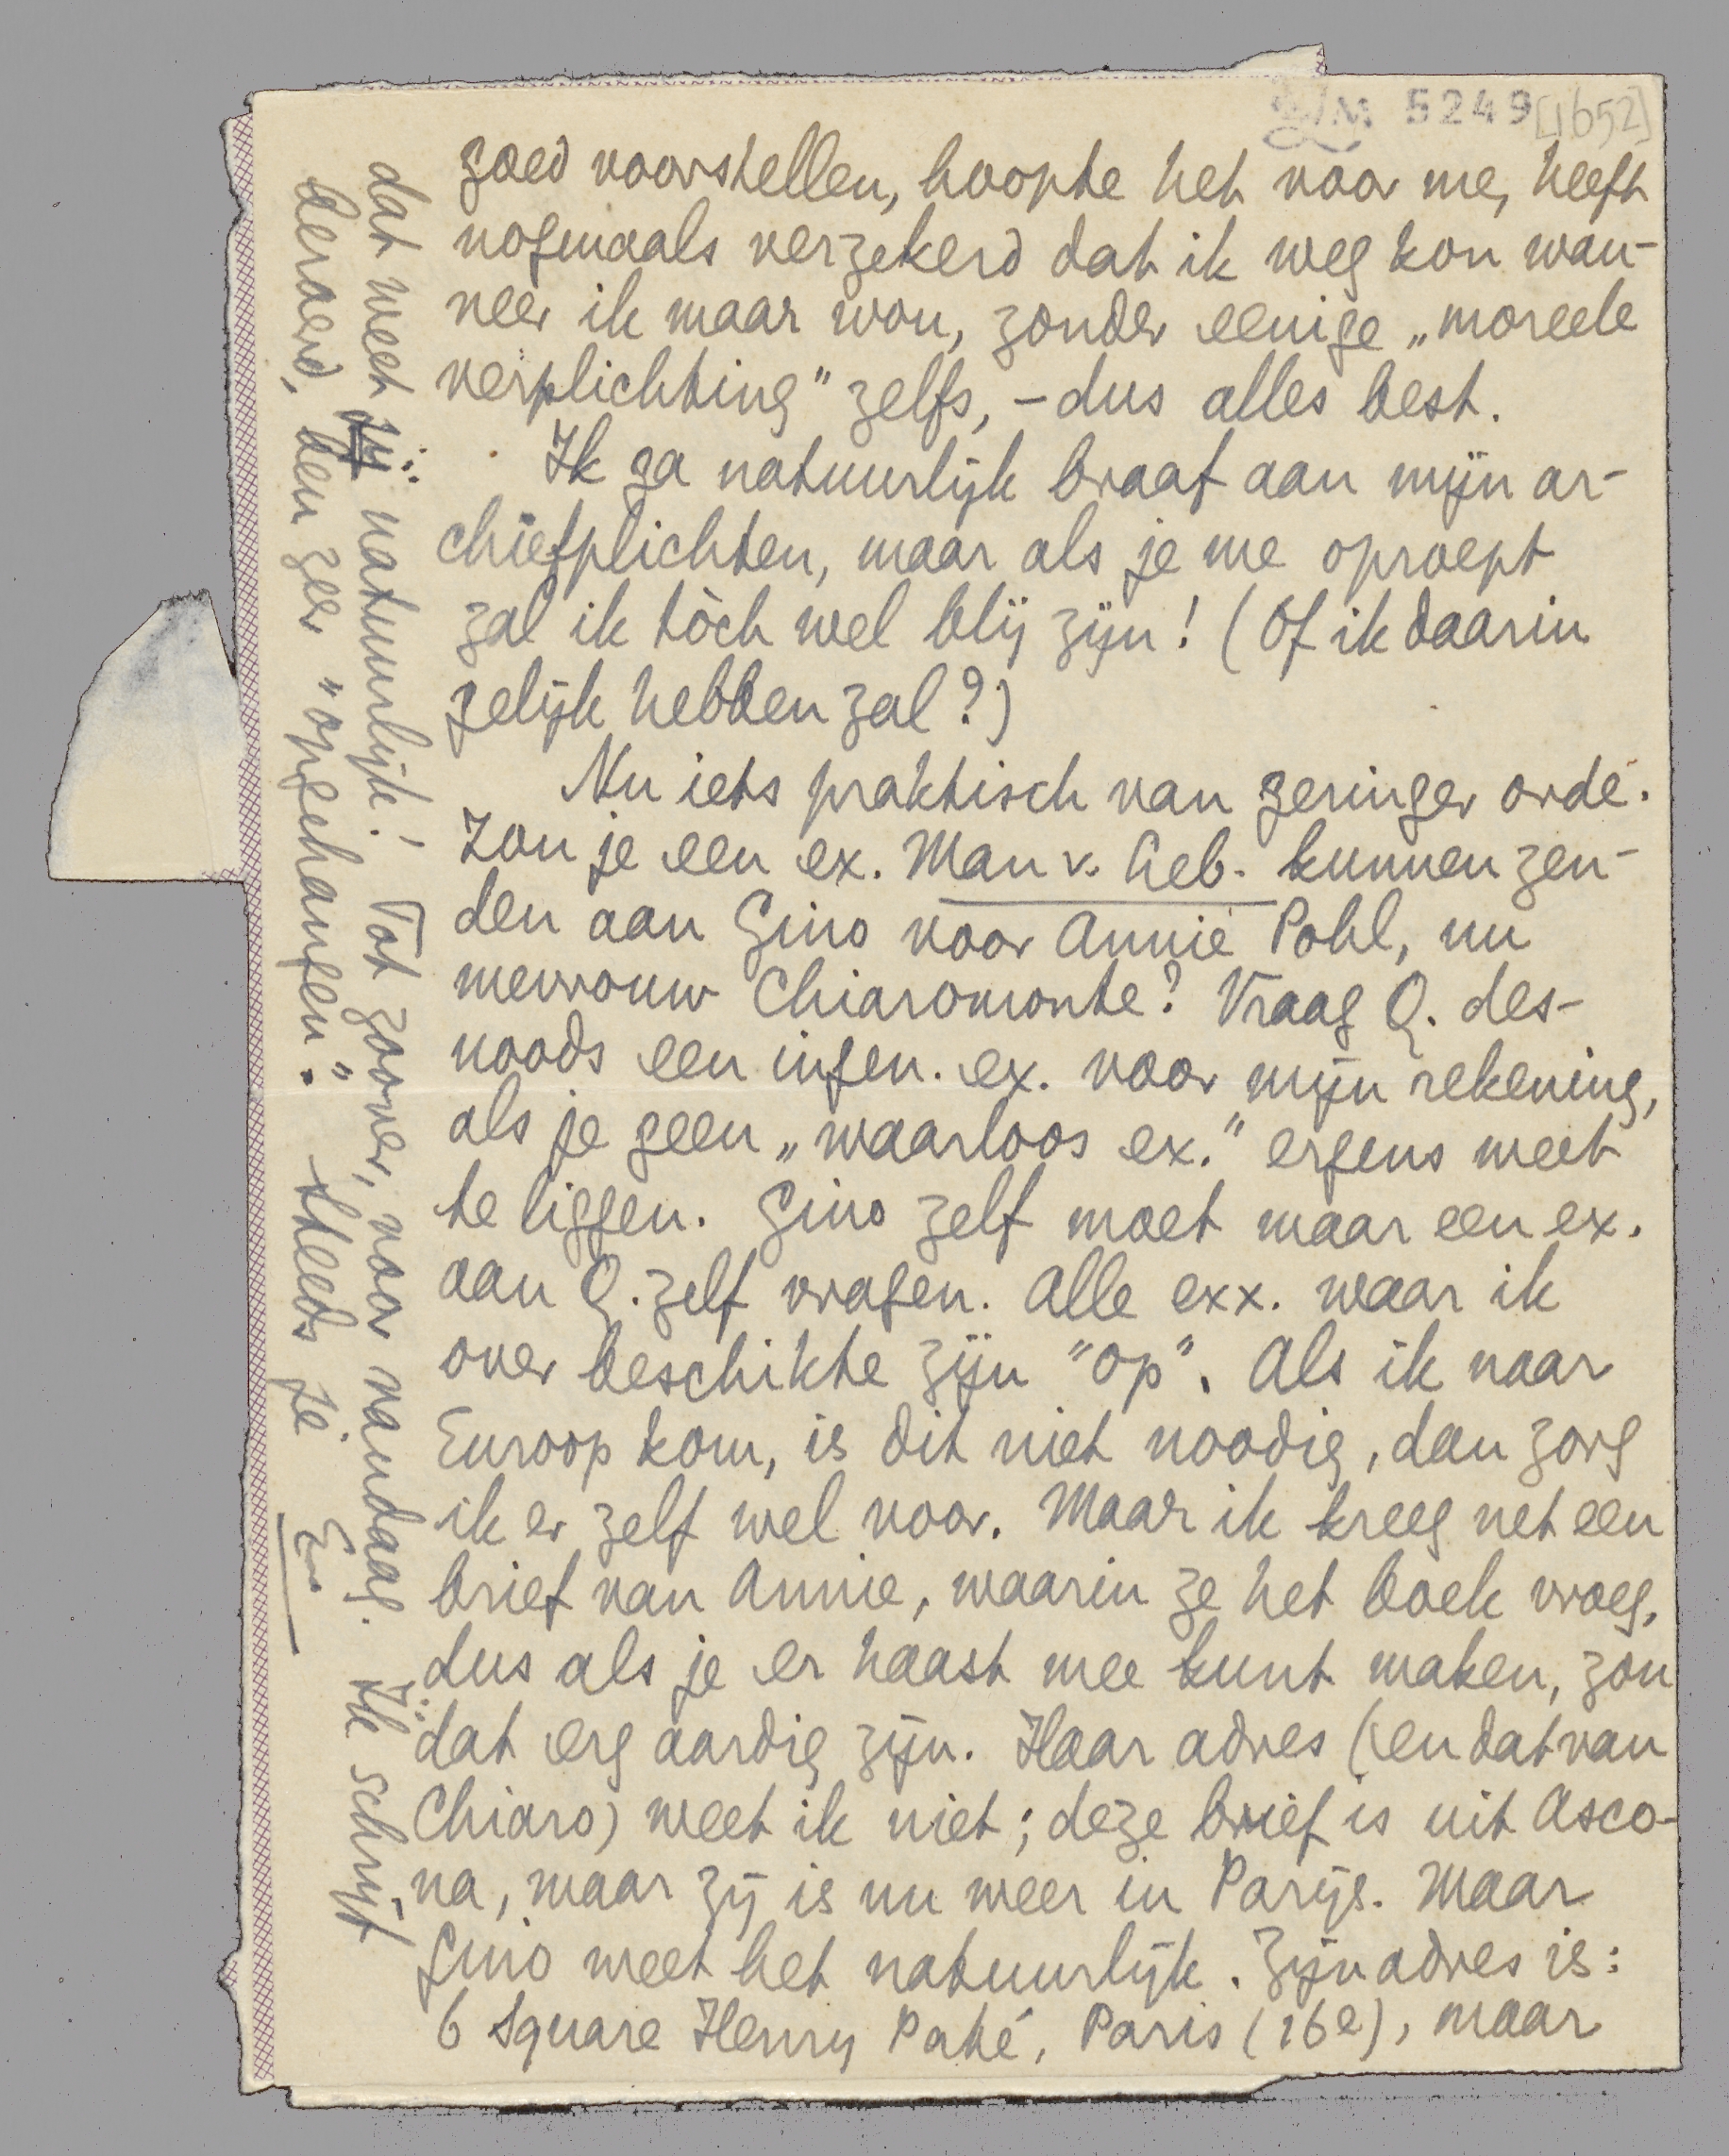 LM 5249 [1652]
goed voorstellen, hoopte het voor me, heeft
nogmaals verzekerd dat ik weg kon wan-
neer ik maar wou, zonder eenige „moreele
verplichting” zelfs, – dus alles best.
Ik ga natuurlijk braaf aan mijn ar-
chiefplichten, maar als je me oproept
zal ik tòch wel blij zijn! (Of ik daarin
gelijk hebben zal?)
Nu iets praktisch van geringer orde.
Zou je een ex. Man v. Geb. kunnen zen-
den aan Gino voor Annie Pohl, nu
mevrouw Chiaromonte? Vraag Q. des-
noods een ingen. ex. voor mijn rekening,
als je geen „waarloos ex.” ergens weet
te liggen. Gino zelf moet maar een ex.
aan Q. zelf vragen. Alle exx. waar ik
over beschikte zijn “op”. Als ik naar
Europ kom, is dit niet noodig, dan zorg
ik er zelf wel voor. Maar ik kreeg net een
brief van Annie, waarin ze het boek vroeg,
dus als je er haast mee kunt maken, zou
dat erg aardig zijn. Haar adres (en dat van
Chiaro) weet ik niet; deze brief is uit Asco-
na, maar zij is nu weer in Parijs. Maar
Gino weet het natuurlijk. Zijn adres is:
6 Square Henry Paté, Paris (16e), maar
dat weet jij natuurlijk! Tot zoover, voor vandaag. Ik schrijf
beroerd, ben zeer „opgehangen”. Steeds je E.